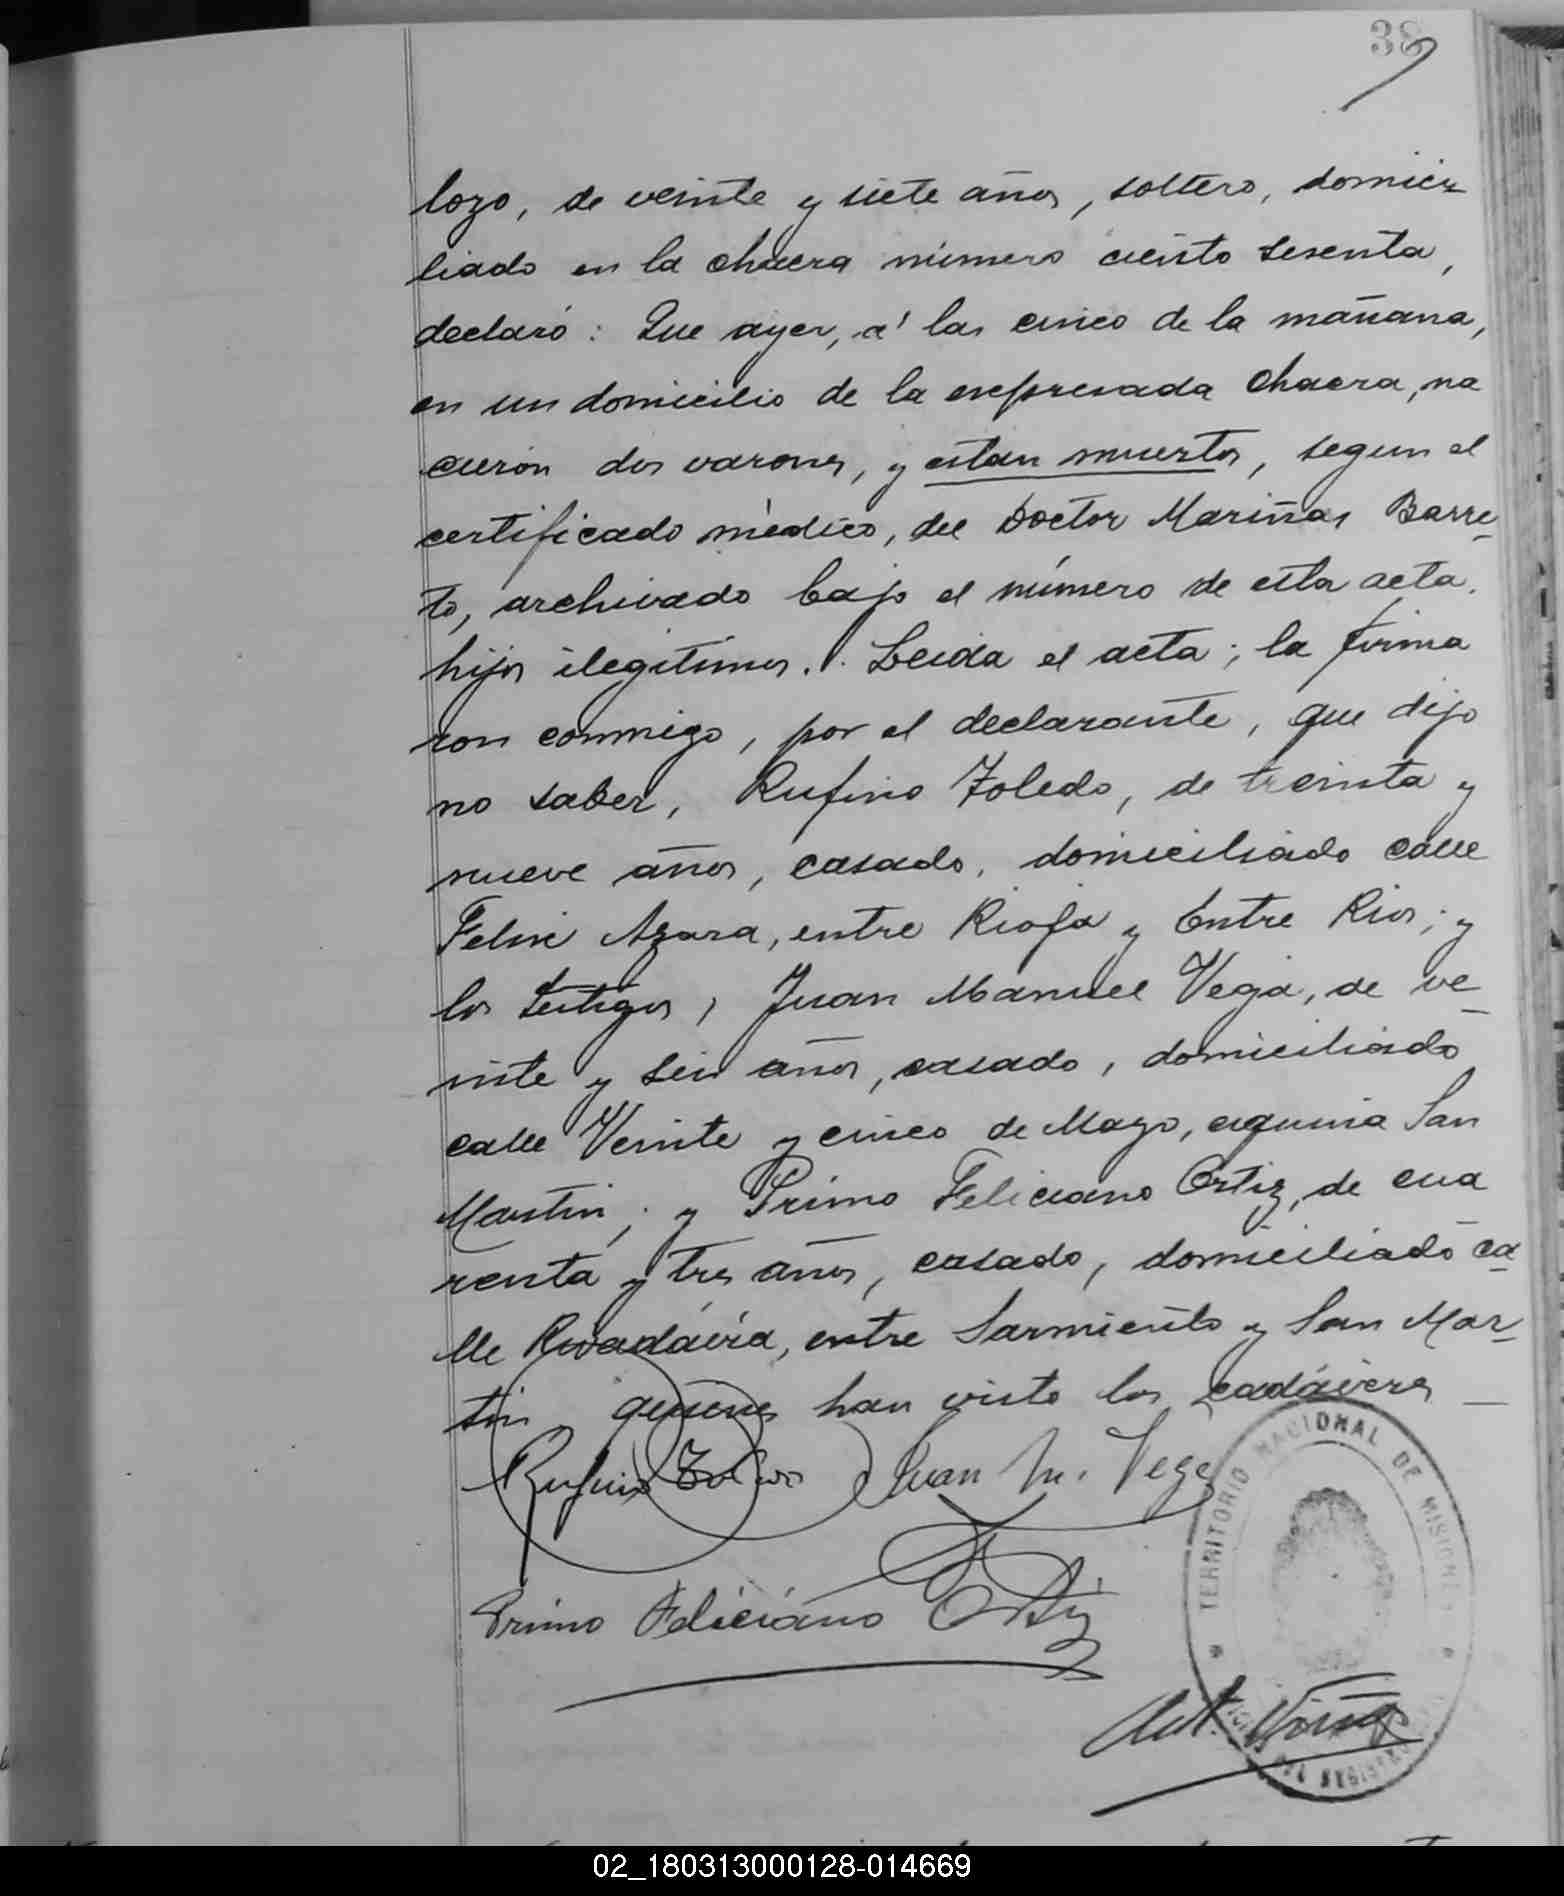 38
lozo, de veinte y siete años, soltero, domici
liado en la chacra número ciento sesenta,
declaró: Que ayer, á las cinco de la mañana,
en un domicilio de la expresada chacra, na
cieron dos varones, y están muertos, segun el
certificado médico, del Doctor Mariñas Barre-
to, archivado bajo el número de esta acta.
hijos ilegítimos. Leida el acta; la firma
ron conmigo, por el declarante, que dijo
no saber, Rufino Toledo, de treinta y
nueve años, casado, domiciliado calle
Felix Azara, entre Rioja y Entre Rios; y
los testigos, Juan Manuel Vega, de ve-
inte y seis años, casado, domiciliado
calle Veinte y cinco de Mayo, esquina San
Martin; y Primo Feliciano Ortiz, de cua
renta y tres años, casado, domiciliado ca-
lle Rivadávia, entre Sarmiento y San Mar-
tin, quienes han visto los cadáveres —
Rufino Toledo Juan M. Vega
Primo Feliciano Ortiz
TERRITORIO NACIONAL DE MISIONES
02_180313000128-014669